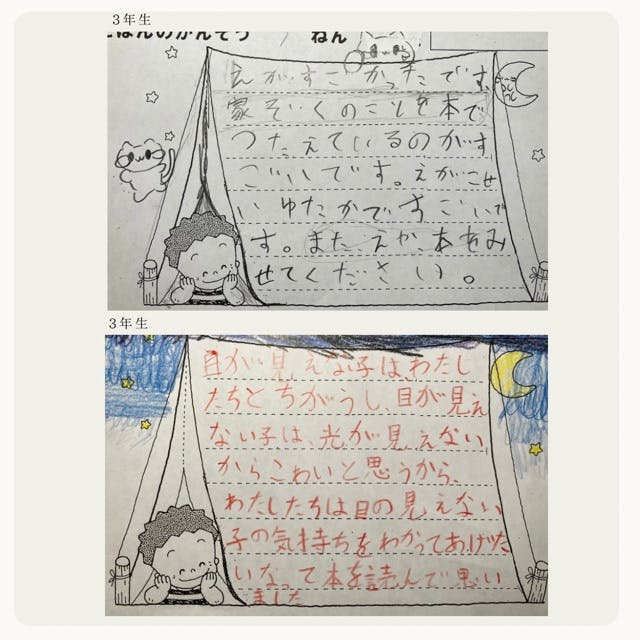 3年生
ほんのかんそう ねん
えがすごかったです。
家ぞくのことを本で
つたえているのがす
ごいです。えがこせ
いゆたかですごいで
す。またえや本をみ
せてください。
3年生
目が見えない子は、わたし
たちとちがうし、目が見え
ない子は、光が見えない
からこわいと思うから、
わたしたちは目の見えない
子の気持ちをわかってあげた
いなって本を読んで思い
ました